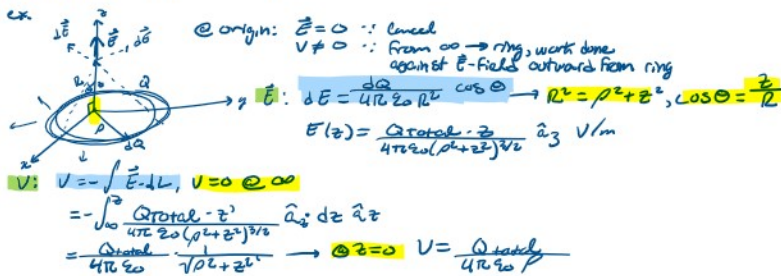 ex.
z
dE⃗ dE⃗
F
R Q
y
ρ
x dQ
@ origin: E⃗ = 0 ∵ cancel
V ≠ 0 ∵ from ∞ → ring, work done
against E⃗-field outward from ring
E⃗: dE = dQ/(4πε₀R²) cos θ → R² = ρ² + z², cos θ = z/R
E(z) = Qtotal · z/(4πε₀(ρ²+z²)^(3/2)) â₃ V/m
V: V = -∫ E⃗·dL, V=0 @ ∞
= -∫_∞^z Qtotal · z'/(4πε₀(ρ²+z²)^(3/2)) â_z · dz â_z
= Qtotal/(4πε₀) · 1/√(ρ²+z²) → @ z=0 V = Qtotal/(4πε₀ρ)